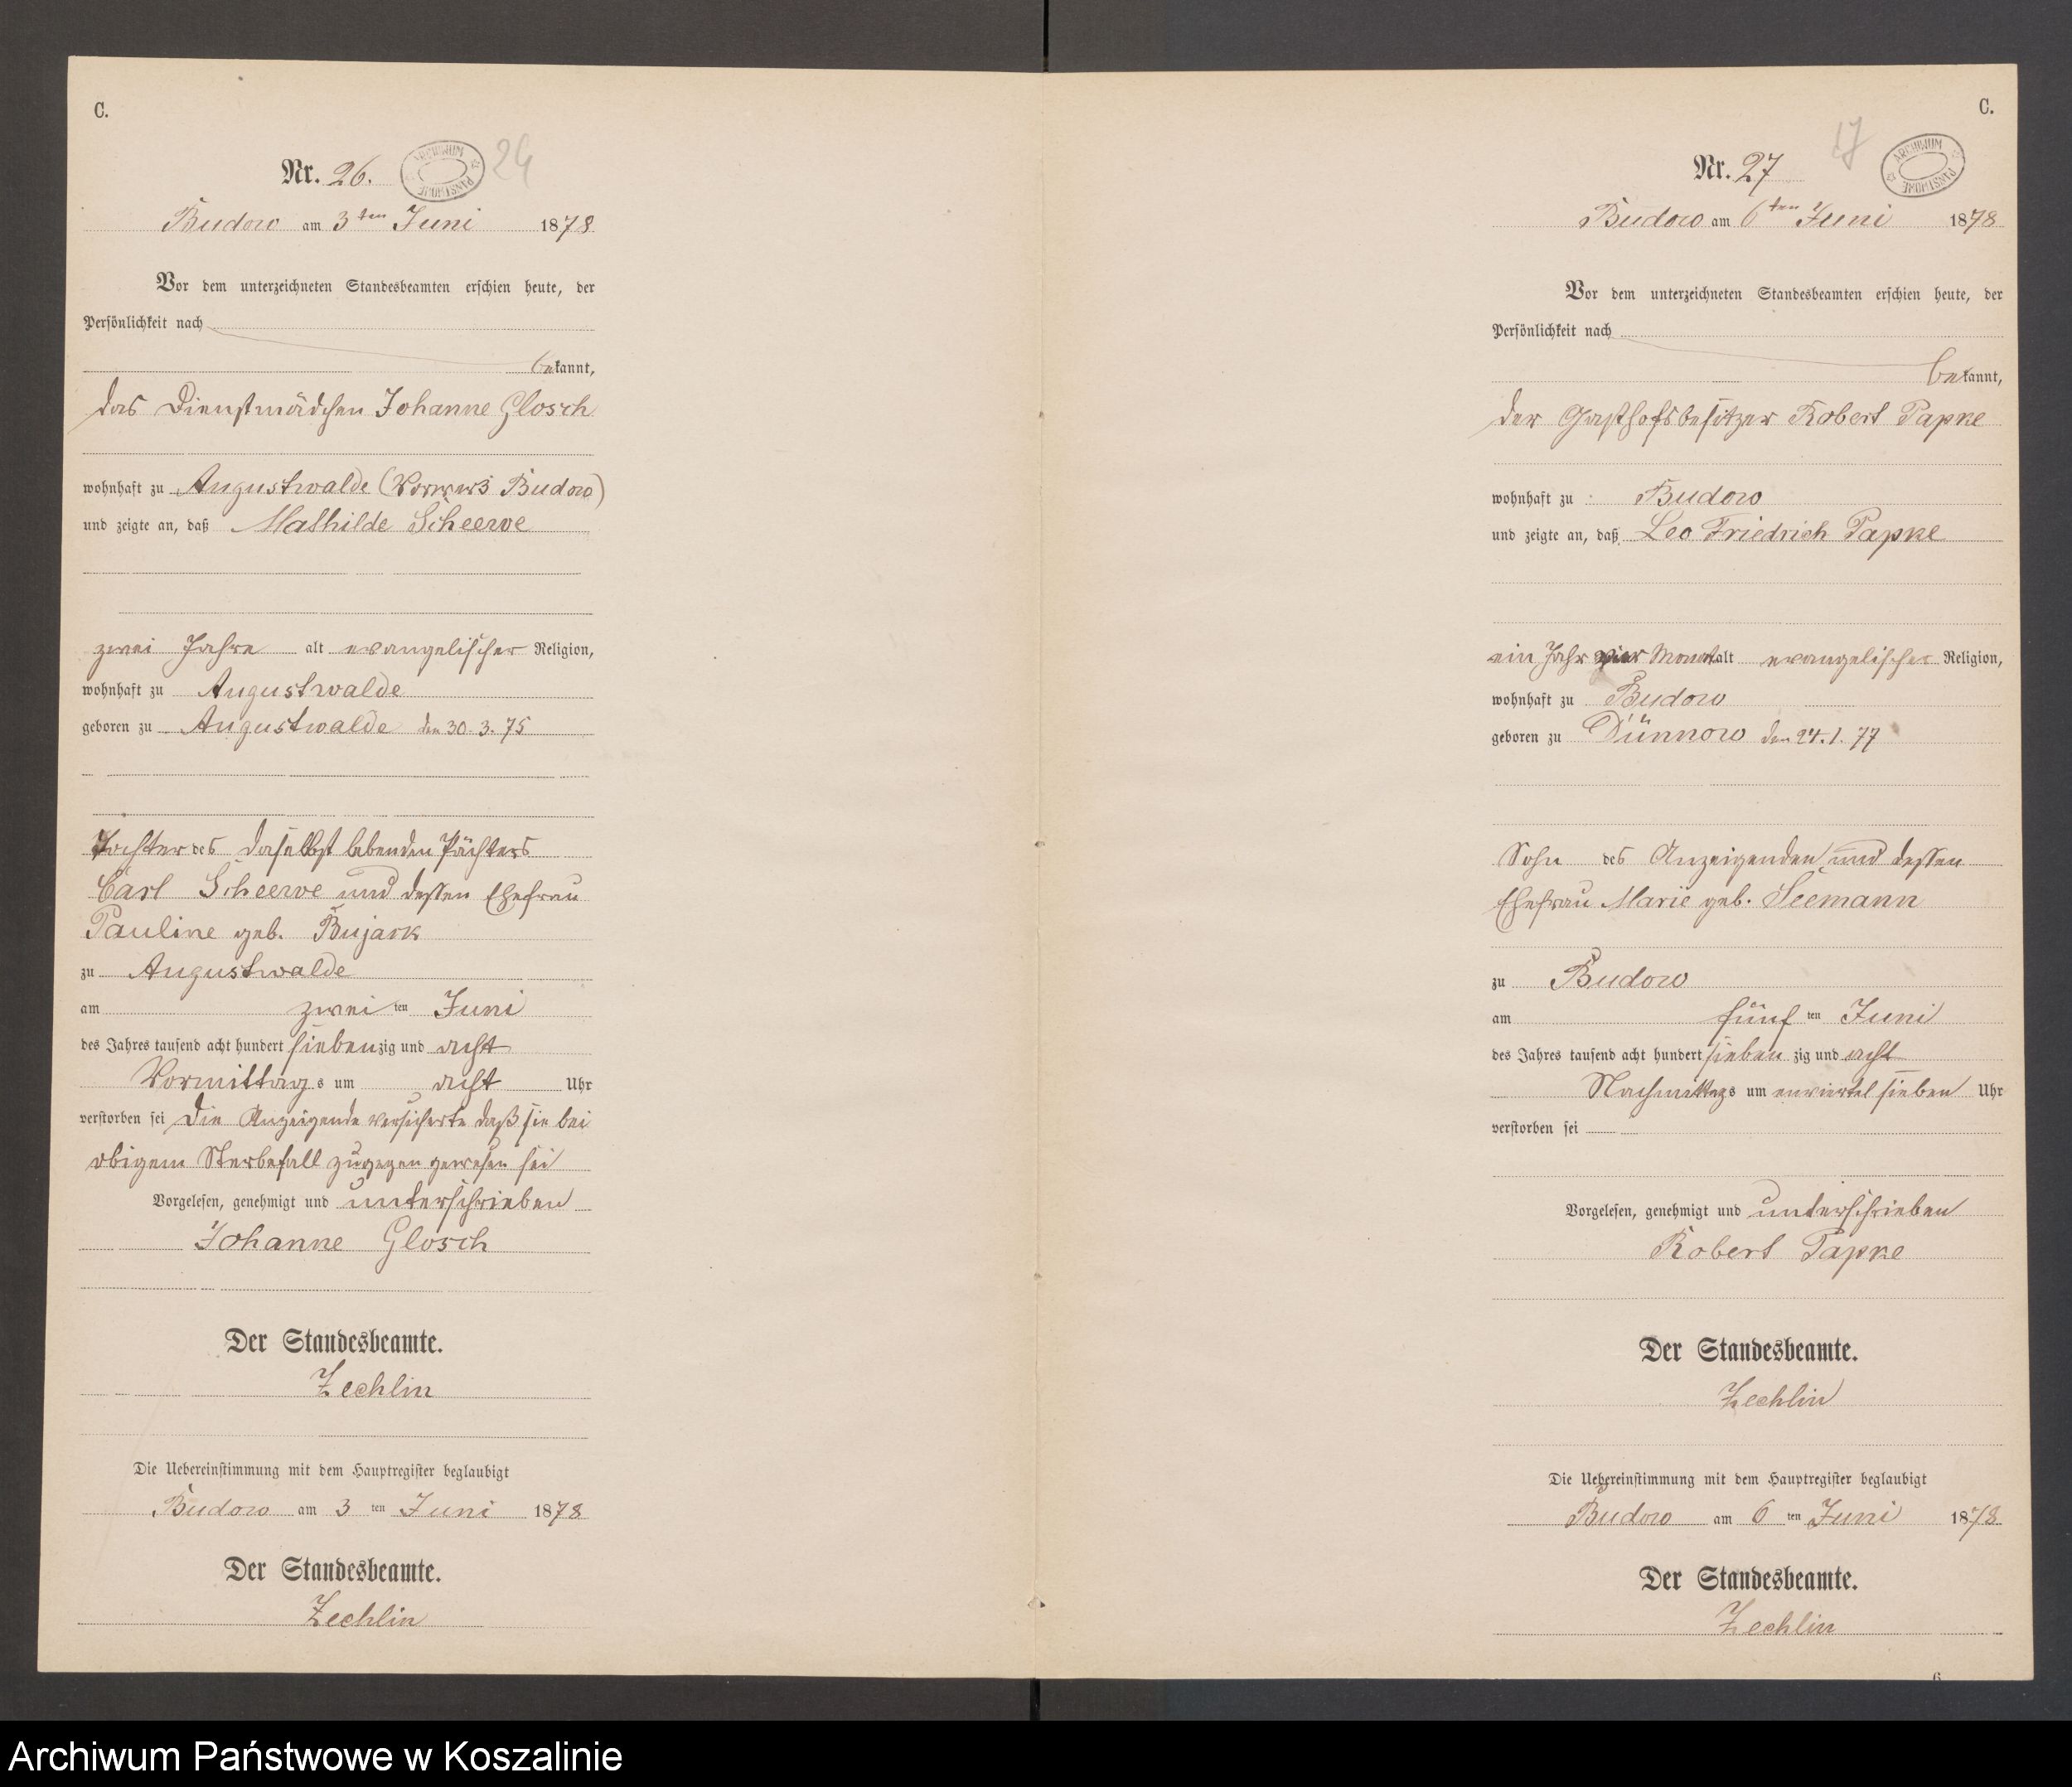 C.
Nr. 26.
ARCHIWUM PAŃSTWOWE
24
Budow am 3ten Juni 1878
Vor dem unterzeichneten Standesbeamten erschien heute, der
Persönlichkeit nach
bekannt,
das Dienstmädchen Johanne Glosch
wohnhaft zu Augustwalde (Vorwerk Budow)
und zeigte an, daß Mathilde Scheerve
zwei Jahre alt evangelischer Religion,
wohnhaft zu Augustwalde
geboren zu Augustwalde den 30.3.75
Tochter des daselbst lebenden Pächters
Carl Scheerve und dessen Ehefrau
Pauline geb. Bujark
zu Augustwalde
am zwei ten Juni
des Jahres tausend acht hundert siebenzig und acht
Vormittags um acht Uhr
verstorben sei Die Anzeigende versicherte daß sie bei
obigem Sterbefall zugegen gewesen sei
Vorgelesen, genehmigt und unterschrieben
Johanne Glosch
Der Standesbeamte.
Zechlin
Die Uebereinstimmung mit dem Hauptregister beglaubigt
Budow am 3 ten Juni 1878
Der Standesbeamte.
Zechlin
C.
Nr. 27
17
ARCHIWUM PAŃSTWOWE
Budow am 6ten Juni 1878
Vor dem unterzeichneten Standesbeamten erschien heute, der
Persönlichkeit nach
bekannt,
der Gasthofsbesitzer Robert Papke
wohnhaft zu Budow
und zeigte an, daß Leo Friedrich Papke
ein Jahr vier Monat alt evangelischer Religion,
wohnhaft zu Budow
geboren zu Dünnow den 24.1.77
Sohn des Anzeigenden und dessen
Ehefrau Marie geb. Seemann
zu Budow
am fünf ten Juni
des Jahres tausend acht hundert sieben zig und acht
Nachmittags um sieben Uhr
verstorben sei
Vorgelesen, genehmigt und unterschrieben
Robert Papke
Der Standesbeamte.
Zechlin
Die Uebereinstimmung mit dem Hauptregister beglaubigt
Budow am 6 ten Juni 1878
Der Standesbeamte.
Zechlin
6
Archiwum Państwowe w Koszalinie